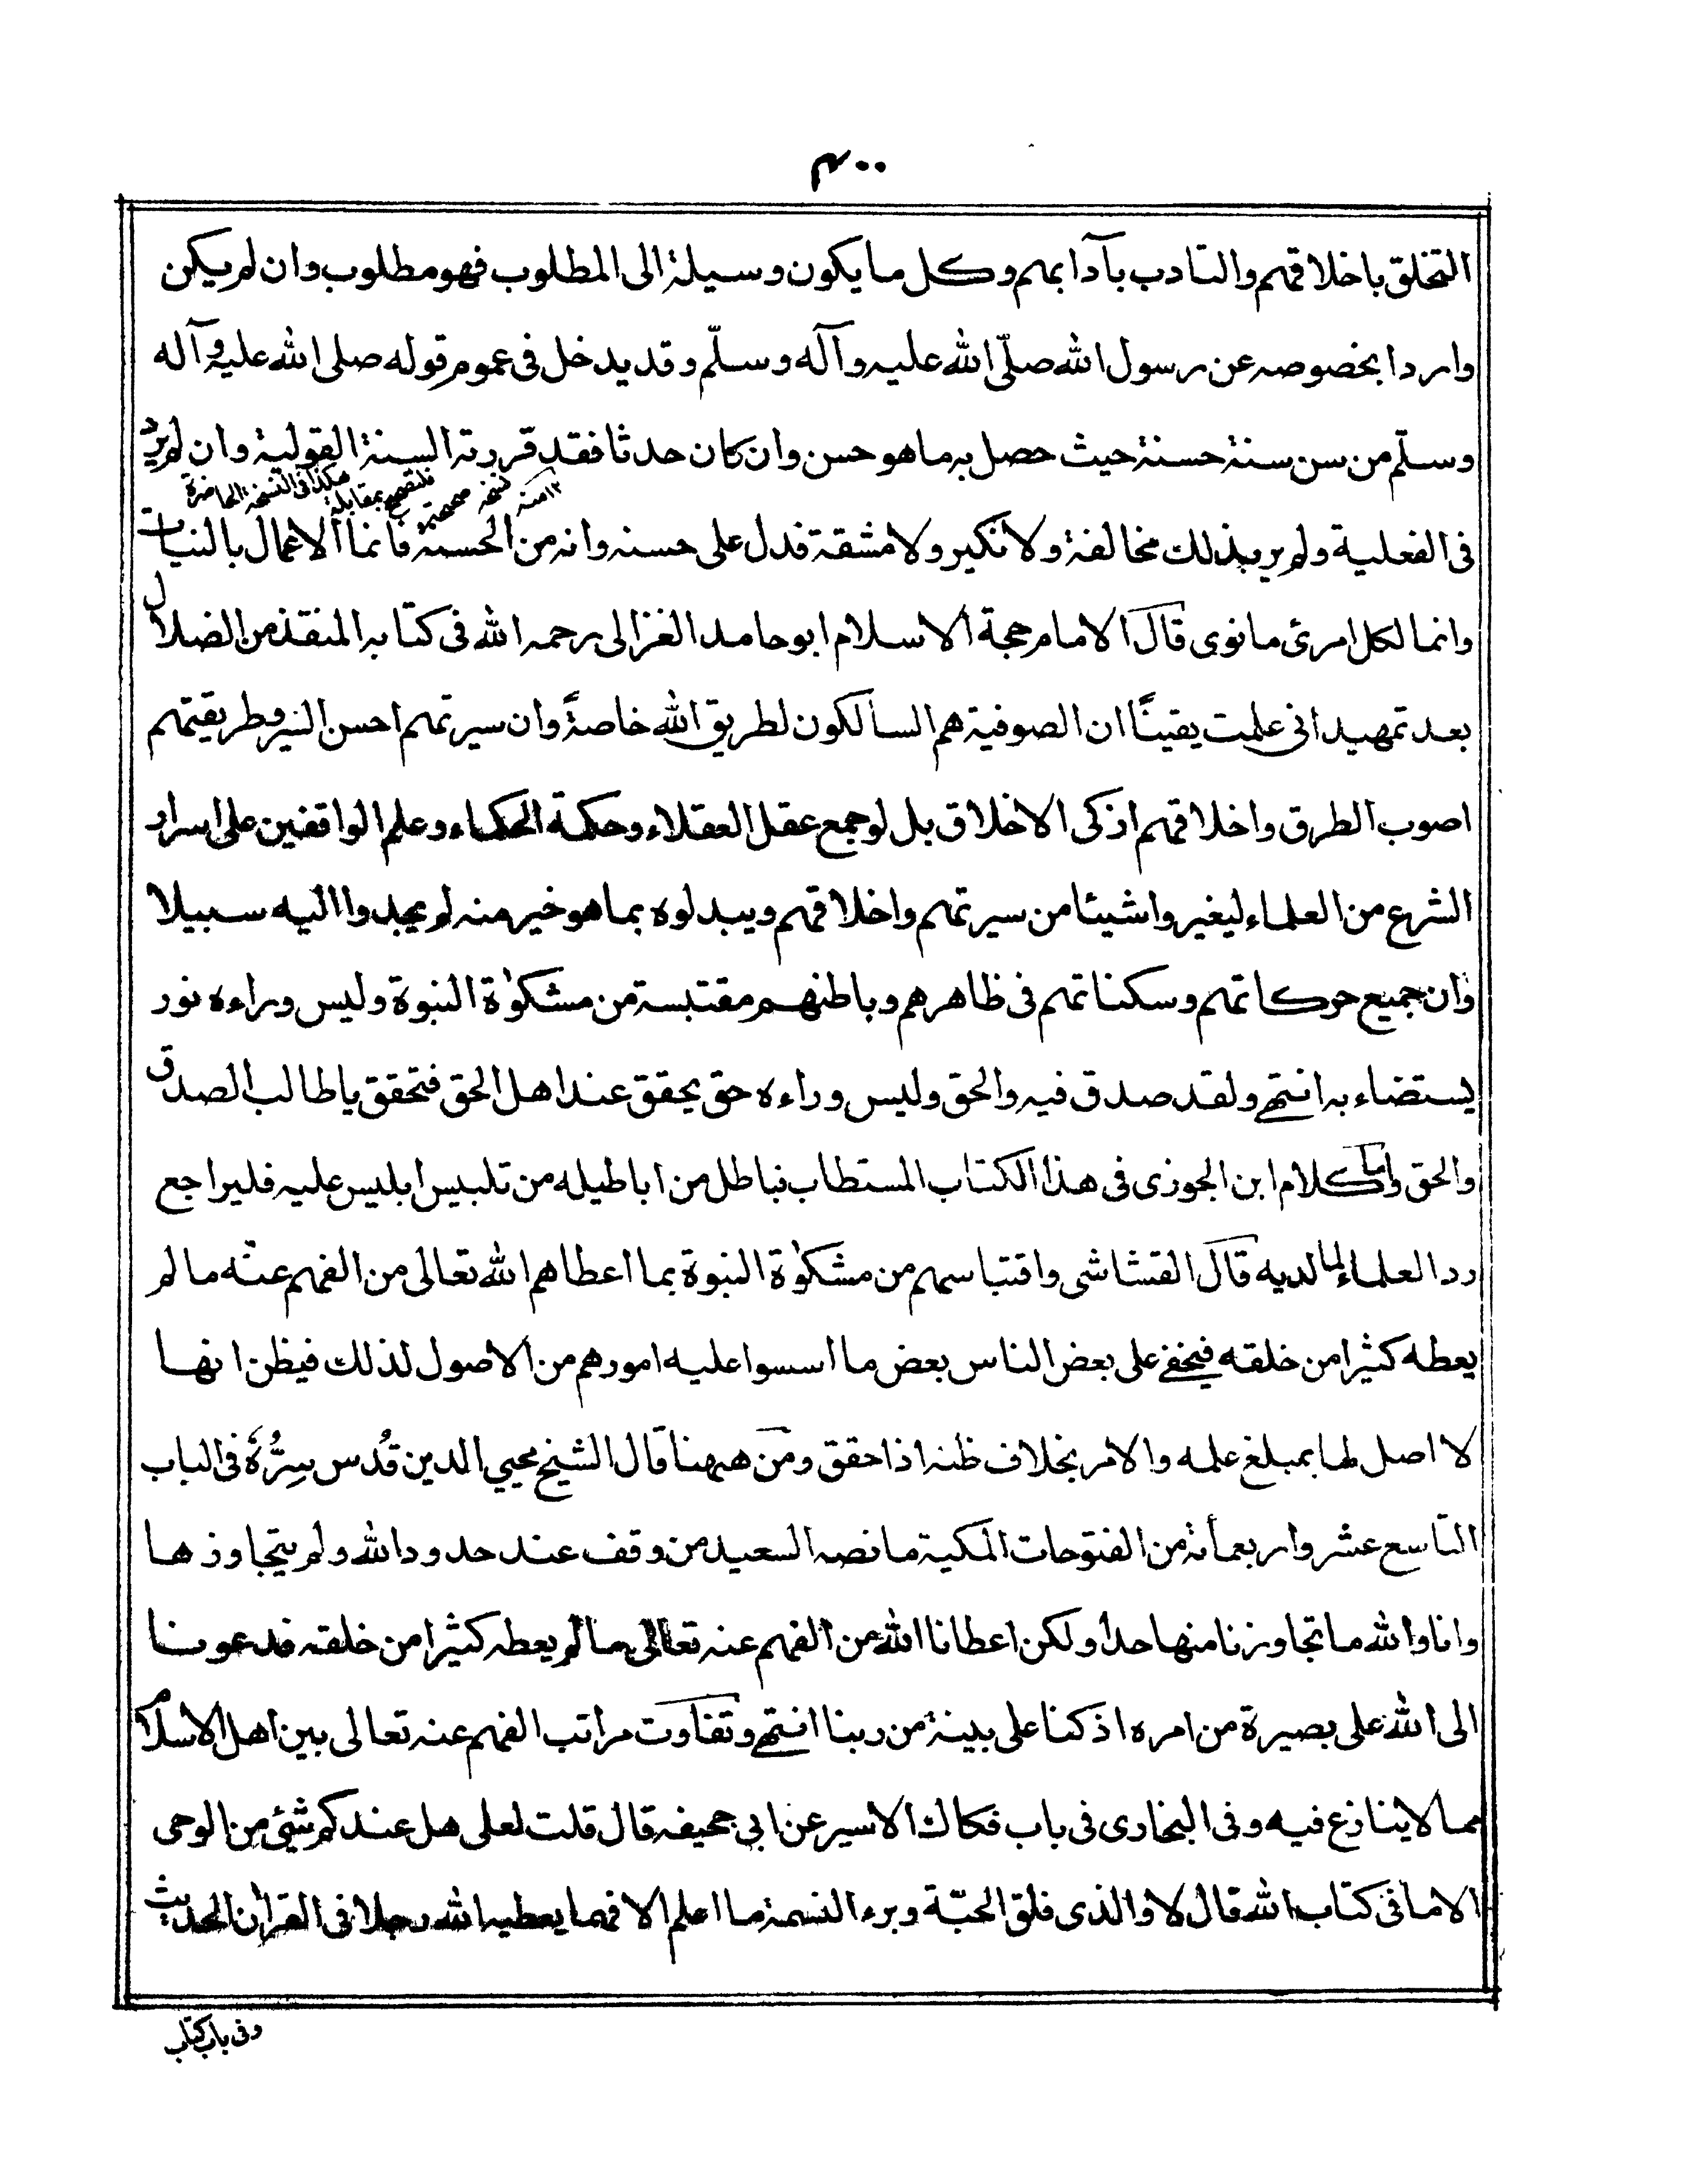 ٤٠٠
التخلق باخلاقهم والتادب بآدابهم وكل ما يكون وسيلة الى المطلوب فهو مطلوب وان لم يكن
واردا بخصوصه عن رسول الله صلّى الله عليه وآله وسلّم وقد يدخل فى عموم قوله صلى الله عليه وآله
وسلّم من سن سنة حسنة حيث حصل به ما هو حسن وان كان حدثا فقد قررته السنة القولية وان لم يرد
هكذا فى النسخة الحاضرة فلتصحح بمقابلة نسخة صحيحة ١٢ منه
فى الفعلية ولم يرد بذلك مخالفة ولا نكير ولا مشقة فدل على حسنه وانه من الحسنة فانما الاعمال بالنيات
وانما لكل امرئ ما نوى قال الامام حجة الاسلام ابو حامد الغزالى رحمه الله فى كتابه المنقذ من الضلال
بعد تمهيد انى علمت يقينًا ان الصوفية هم السالكون لطريق الله خاصةً وان سيرتهم احسن السير وطريقتهم
اصوب الطرق واخلاقهم ازكى الاخلاق بل لو جمع عقل العقلاء وحكمة الحكماء وعلم الواقفين على اسرار
الشرع من العلماء ليغيروا شيئا من سيرتهم واخلاقهم ويبدلوه بما هو خير منه لم يجدوا اليه سبيلا
وان جميع حركاتهم وسكناتهم فى ظاهرهم وباطنهم مقتبسة من مشكوٰة النبوة وليس وراءه نور
يستضاء به انتهى ولقد صدق فيه والحق وليس وراءه حق يحقق عند اهل الحق فتحقق يا طالب الصدق
والحق واما كلام ابن الجوزى فى هذا الكتاب المستطاب فباطل من اباطيله من تلبيس ابليس عليه فليراجع
رد العلماء لما لديه قال القشاشى واقتباسهم من مشكوٰة النبوة بما اعطاهم الله تعالى من الفهم عنه ما لم
يعطه كثيرا من خلقه فيخفى على بعض الناس بعض ما اسسوا عليه امورهم من الاصول لذلك فيظن انها
لا اصل لها بمبلغ علمه والامر بخلاف ظنه اذا حقق ومن ههنا قال الشيخ محيي الدين قُدس سِرُّهٗ فى الباب
التاسع عشر واربعمأة من الفتوحات المكية ما نصه السعيد من وقف عند حدود الله ولم يتجاوزها
وانا والله ما تجاوزنا منها حدا ولكن اعطانا الله من الفهم عنه تعالى ما لم يعطه كثيرا من خلقه فدعونا
الى الله على بصيرة من امره اذ كنا على بينة من ربنا انتهى وتفاوت مراتب الفهم عنه تعالى بين اهل الاسلام
مما لا ينازع فيه وفى البخارى فى باب فكاك الاسير عن ابى جحيفه قال قلت لعلى هل عندكم شئ من الوحى
الا ما فى كتاب الله قال لا والذى فلق الحبّة وبرء النسمة ما اعلم الا فهما يعطيه الله رجلا فى القرآن الحديث
وفى باب كتاب